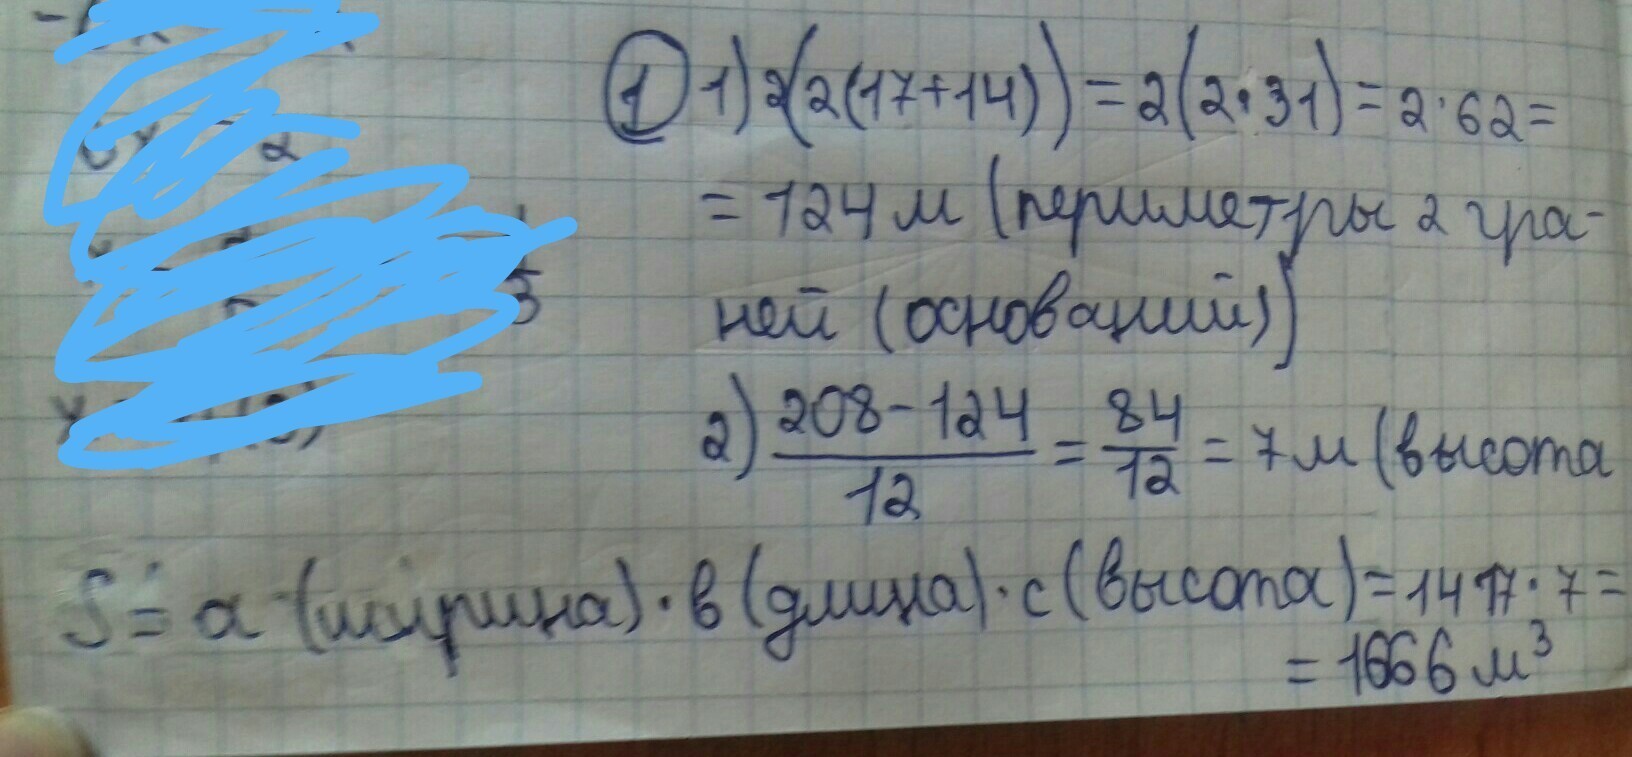 ① 1) 2(2(17+14)) = 2(2·31) = 2·62 =
= 124 м (периметры 2 гра-
ней (оснований))
2) 208-124/12 = 84/12 = 7 м (высота
S = а (ширина) · в (длина) · с (высота) = 14 17 · 7 =
= 1666 м³